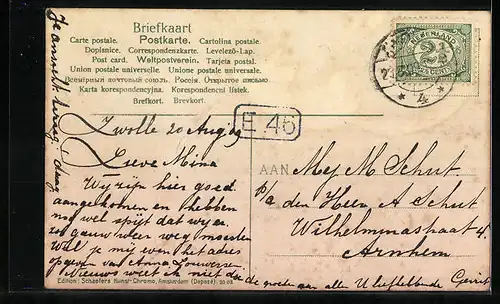 Briefkaart
Carte postale. Postkarte. Cartolina postale.
Dopisnice. Correspondenzkarte. Levelező-Lap.
Post card. Weltpostverein. Tarjeta postal.
Union postale universelle. Unione postale universale.
Всемірный почтовый союзъ. Россія. Открытое письмо.
Karta korespondencyjna. Korespondenční lístek.
Brefkort. Brevkort.
NEDERLAND
2½
CENT
4
E.46
Zwolle 20 Aug 09
Lieve Mina
Wij zijn hier goed
aangekomen en hebben
me wel spijt dat wij er
zo gauw weer weg moesten
Wil je mij even het adres
opgeven van Anna
Nieuws weet ik niet de
de groeten aan alle U liefhebbende Gerrit
AAN
Mej M Schut
p/a den Heer A Schut
Wilhelminastraat 4
Arnhem
Edition: Schaefers Kunst-Chromo, Amsterdam (Deposé).